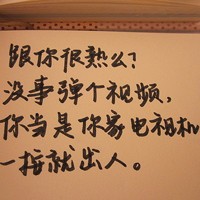 跟你很熟么？
没事弹个视频，
你当是你家电视机
一按就出人。